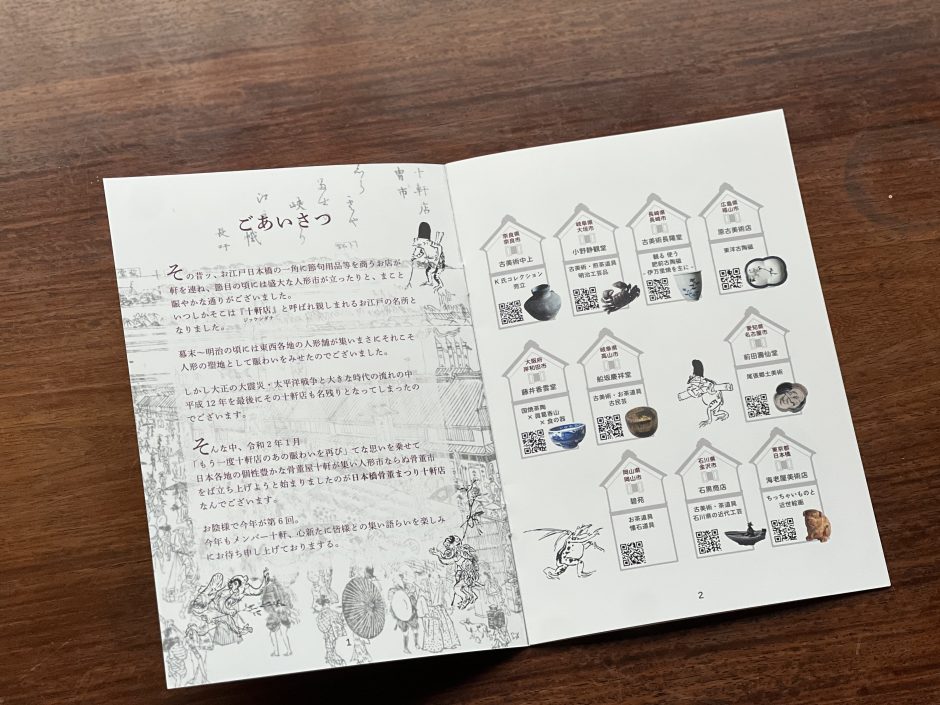 十軒店
ごあいさつ
その昔ッ、お江戸日本橋の一角に節句用品等を商うお店が
軒を連ね、節目の頃には盛大な人形市が立ったりと、まこと
賑やかな通りがございました。
いつしかそこは『十軒店』と呼ばれ親しまれるお江戸の名所と
ジッケンダナ
なりました。
幕末〜明治の頃には東西各地の人形舗が集いまさにそれこそ
人形の聖地として賑わいをみせたのでございました。
しかし大正の大震災・太平洋戦争と大きな時代の流れの中
平成12年を最後にその十軒店も名残りとなってしまったの
でございます。
そんな中、令和2年1月
「もう一度十軒店のあの賑わいを再び」てな思いを乗せて
日本各地の個性豊かな骨董屋十軒が集い人形市ならぬ骨董市
をば立ち上げようと始まりましたのが日本橋骨董まつり十軒店
なんでございます。
お陰様で今年が第6回。
今年もメンバー十軒、心新たに皆様との集い語らいを楽しみ
にお待ち申し上げておりまする。
1
奈良県
奈良市
古美術中上
K氏コレクション
売立
岐阜県
大垣市
小野静観堂
古美術・煎茶道具
明治工芸品
長崎県
長崎市
古美術長陽堂
観る 使う
肥前古陶磁
-伊万里焼を主に-
広島県
福山市
原古美術店
東洋古陶磁
大阪府
岸和田市
藤井香雲堂
国焼茶陶
×
×食の器
岐阜県
高山市
舩坂慶祥堂
古美術・お茶道具
古民芸
愛知県
名古屋市
前田壽仙堂
尾張郷土美術
岡山県
岡山市
碧苑
お茶道具
懐石道具
石川県
金沢市
石黒商店
古美術・茶道具
石川県の近代工芸
東京都
日本橋
海老屋美術店
ちっちゃいものと
近世絵画
2